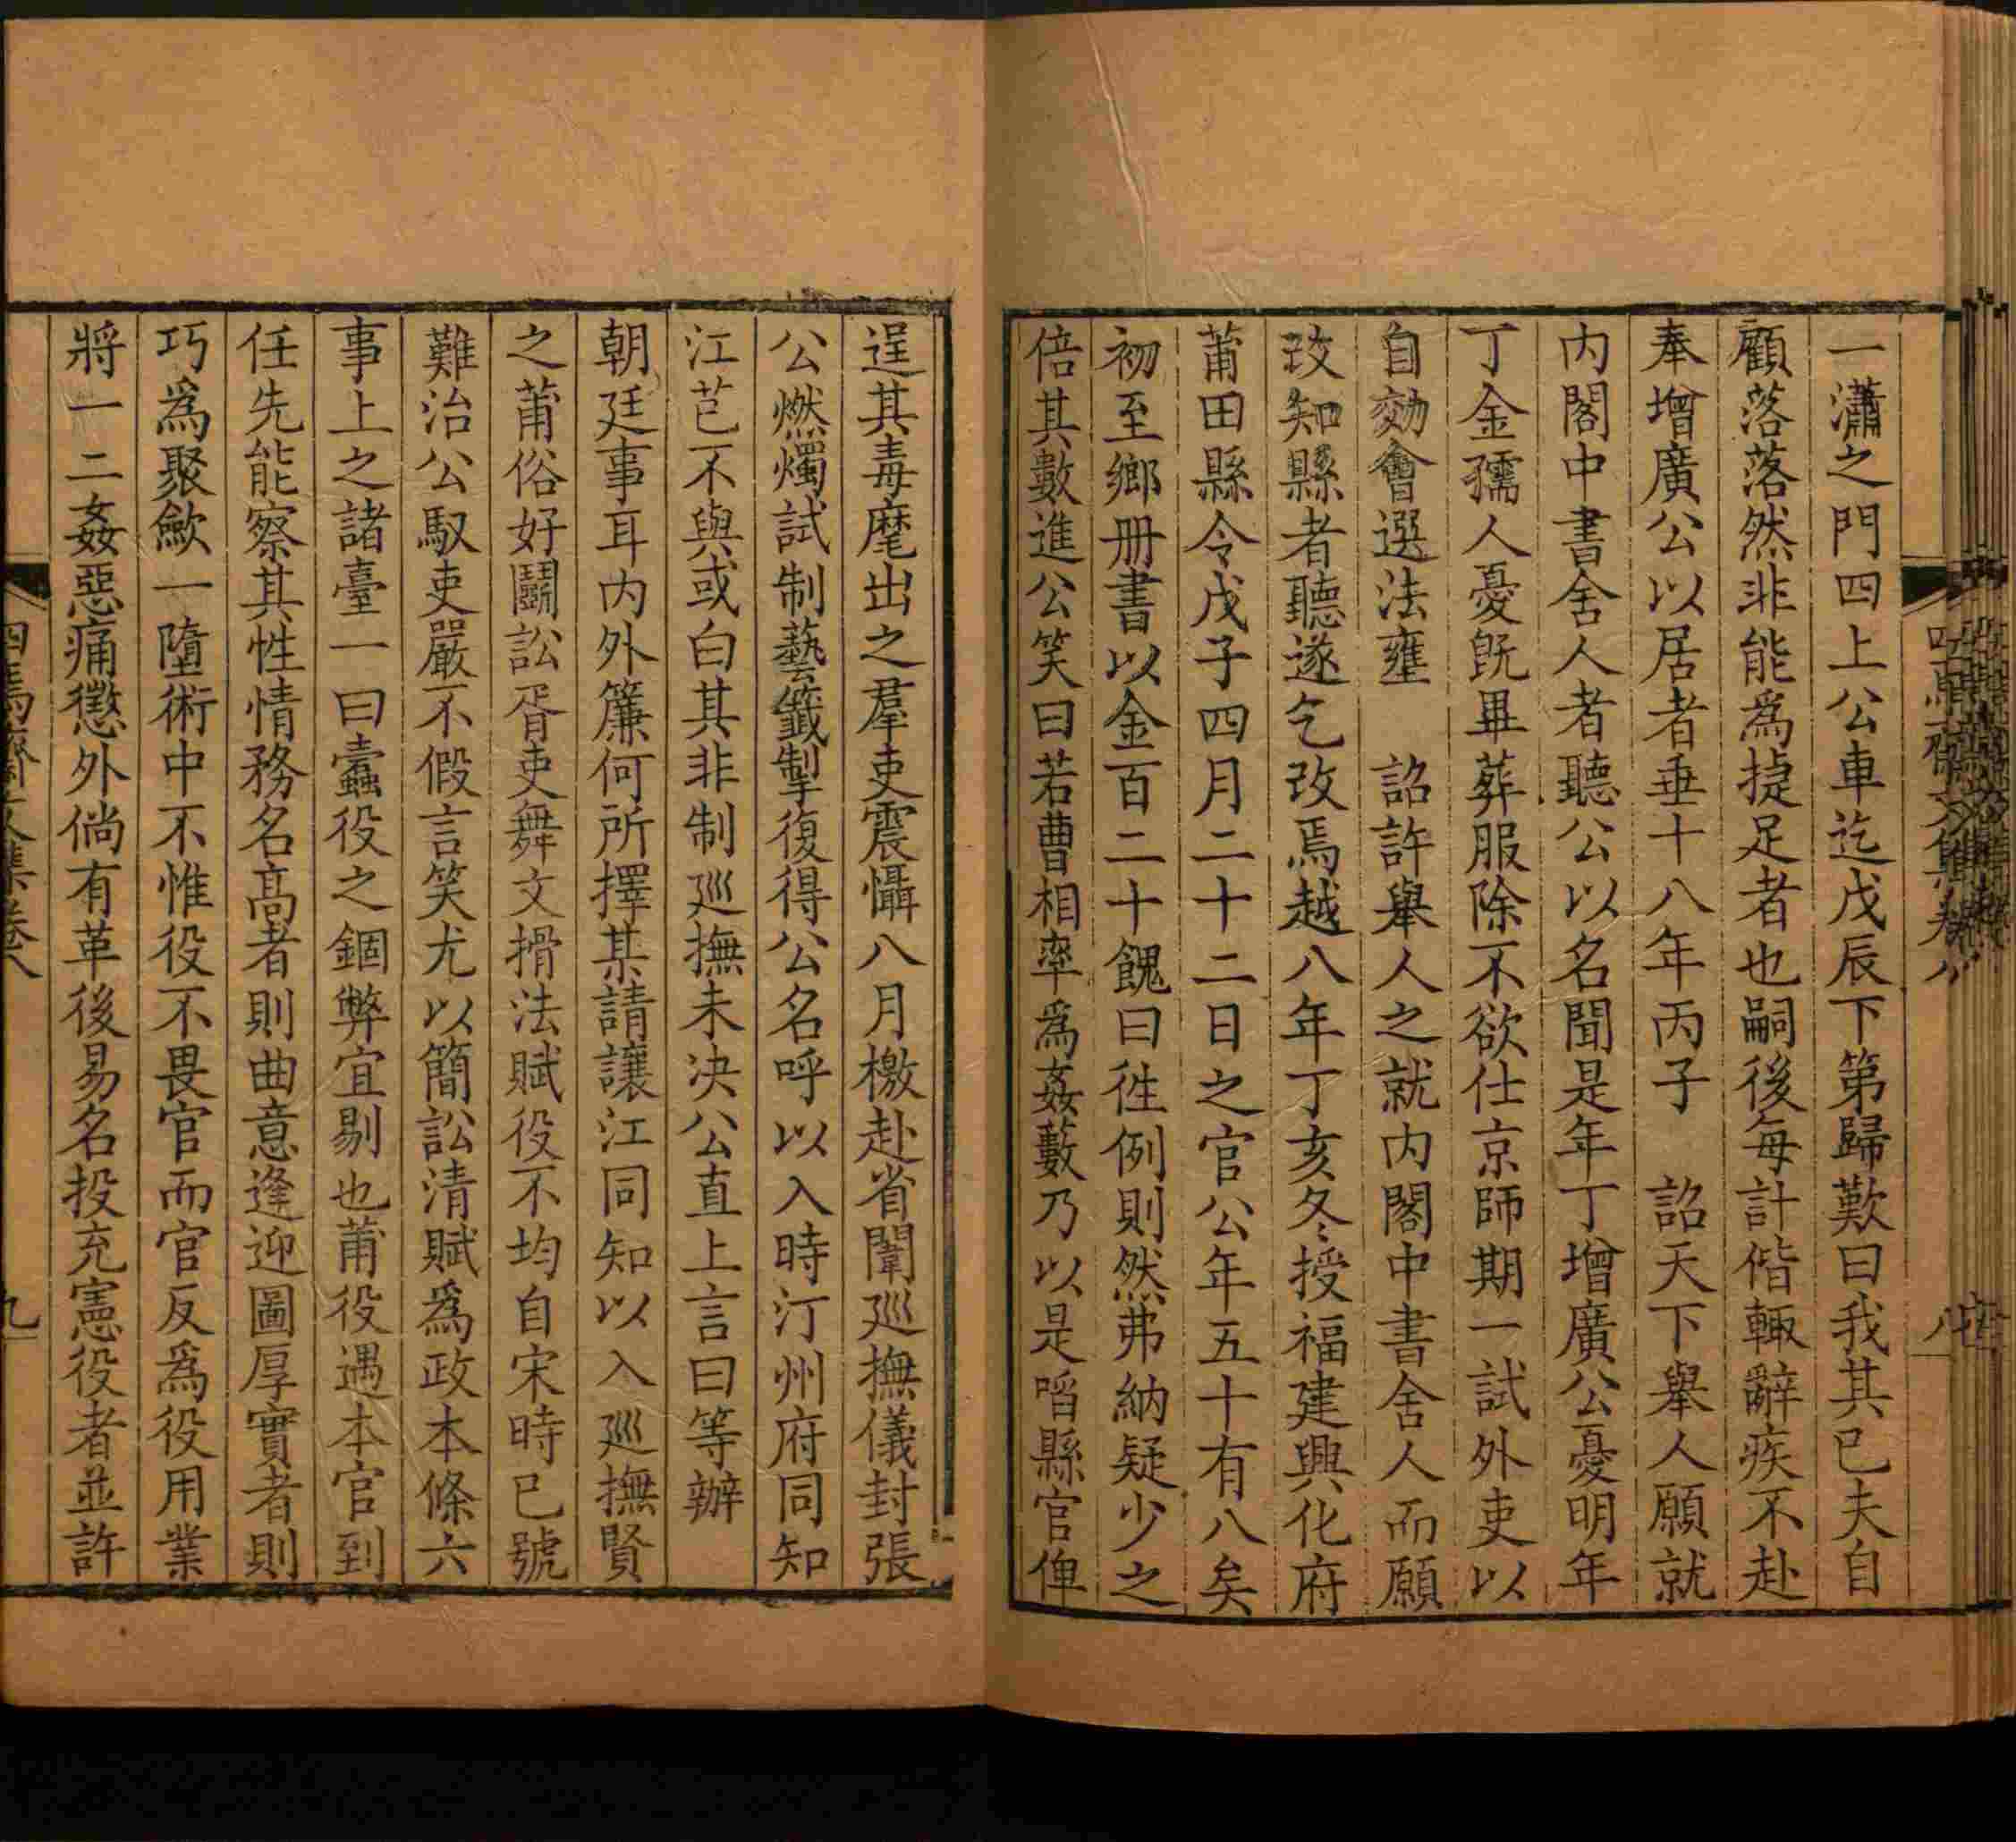 一瀟之門四上公車迄戊辰下第歸歎曰我其已夫自
顧落落然非能爲捷足者也嗣後每計偕輙辭疾不赴
奉增廣公以居者垂十八年丙子　詔天下舉人願就
内閣中書舍人者聽公以名聞是年丁增廣公憂明年
丁金孺人憂旣畢葬服除不欲仕京師期一試外吏以
自効會選法壅　詔許舉人之就内閣中書舍人而願
攺知縣者聽遂乞攺焉越八年丁亥冬授福建興化府
莆田縣令戊子四月二十二日之官公年五十有八矣
初至鄉册書以金百二十餽曰徃例則然弗納疑少之
倍其數進公笑曰若曹相率爲姦藪乃以是啗縣官俾
逞其毒麾出之羣吏震懾八月檄赴省闈巡撫儀封張
公燃燭試制藝籤掣復得公名呼以入時汀州府同知
江芑不與或白其非制巡撫未决公直上言曰等辦
朝廷事耳内外簾何所擇某請讓江同知以入巡撫賢
之莆俗好鬭訟胥吏舞文搰法賦役不均自宋時已號
難治公馭吏嚴不假言笑尤以簡訟清賦爲政本條六
事上之諸臺一曰蠹役之錮弊宜剔也莆役遇本官到
任先能察其性情務名高者則曲意逢迎圖厚實者則
巧爲聚歛一墮術中不惟役不畏官而官反爲役用業
將一二姦惡痛懲外倘有革後易名投充憲役者並許
九